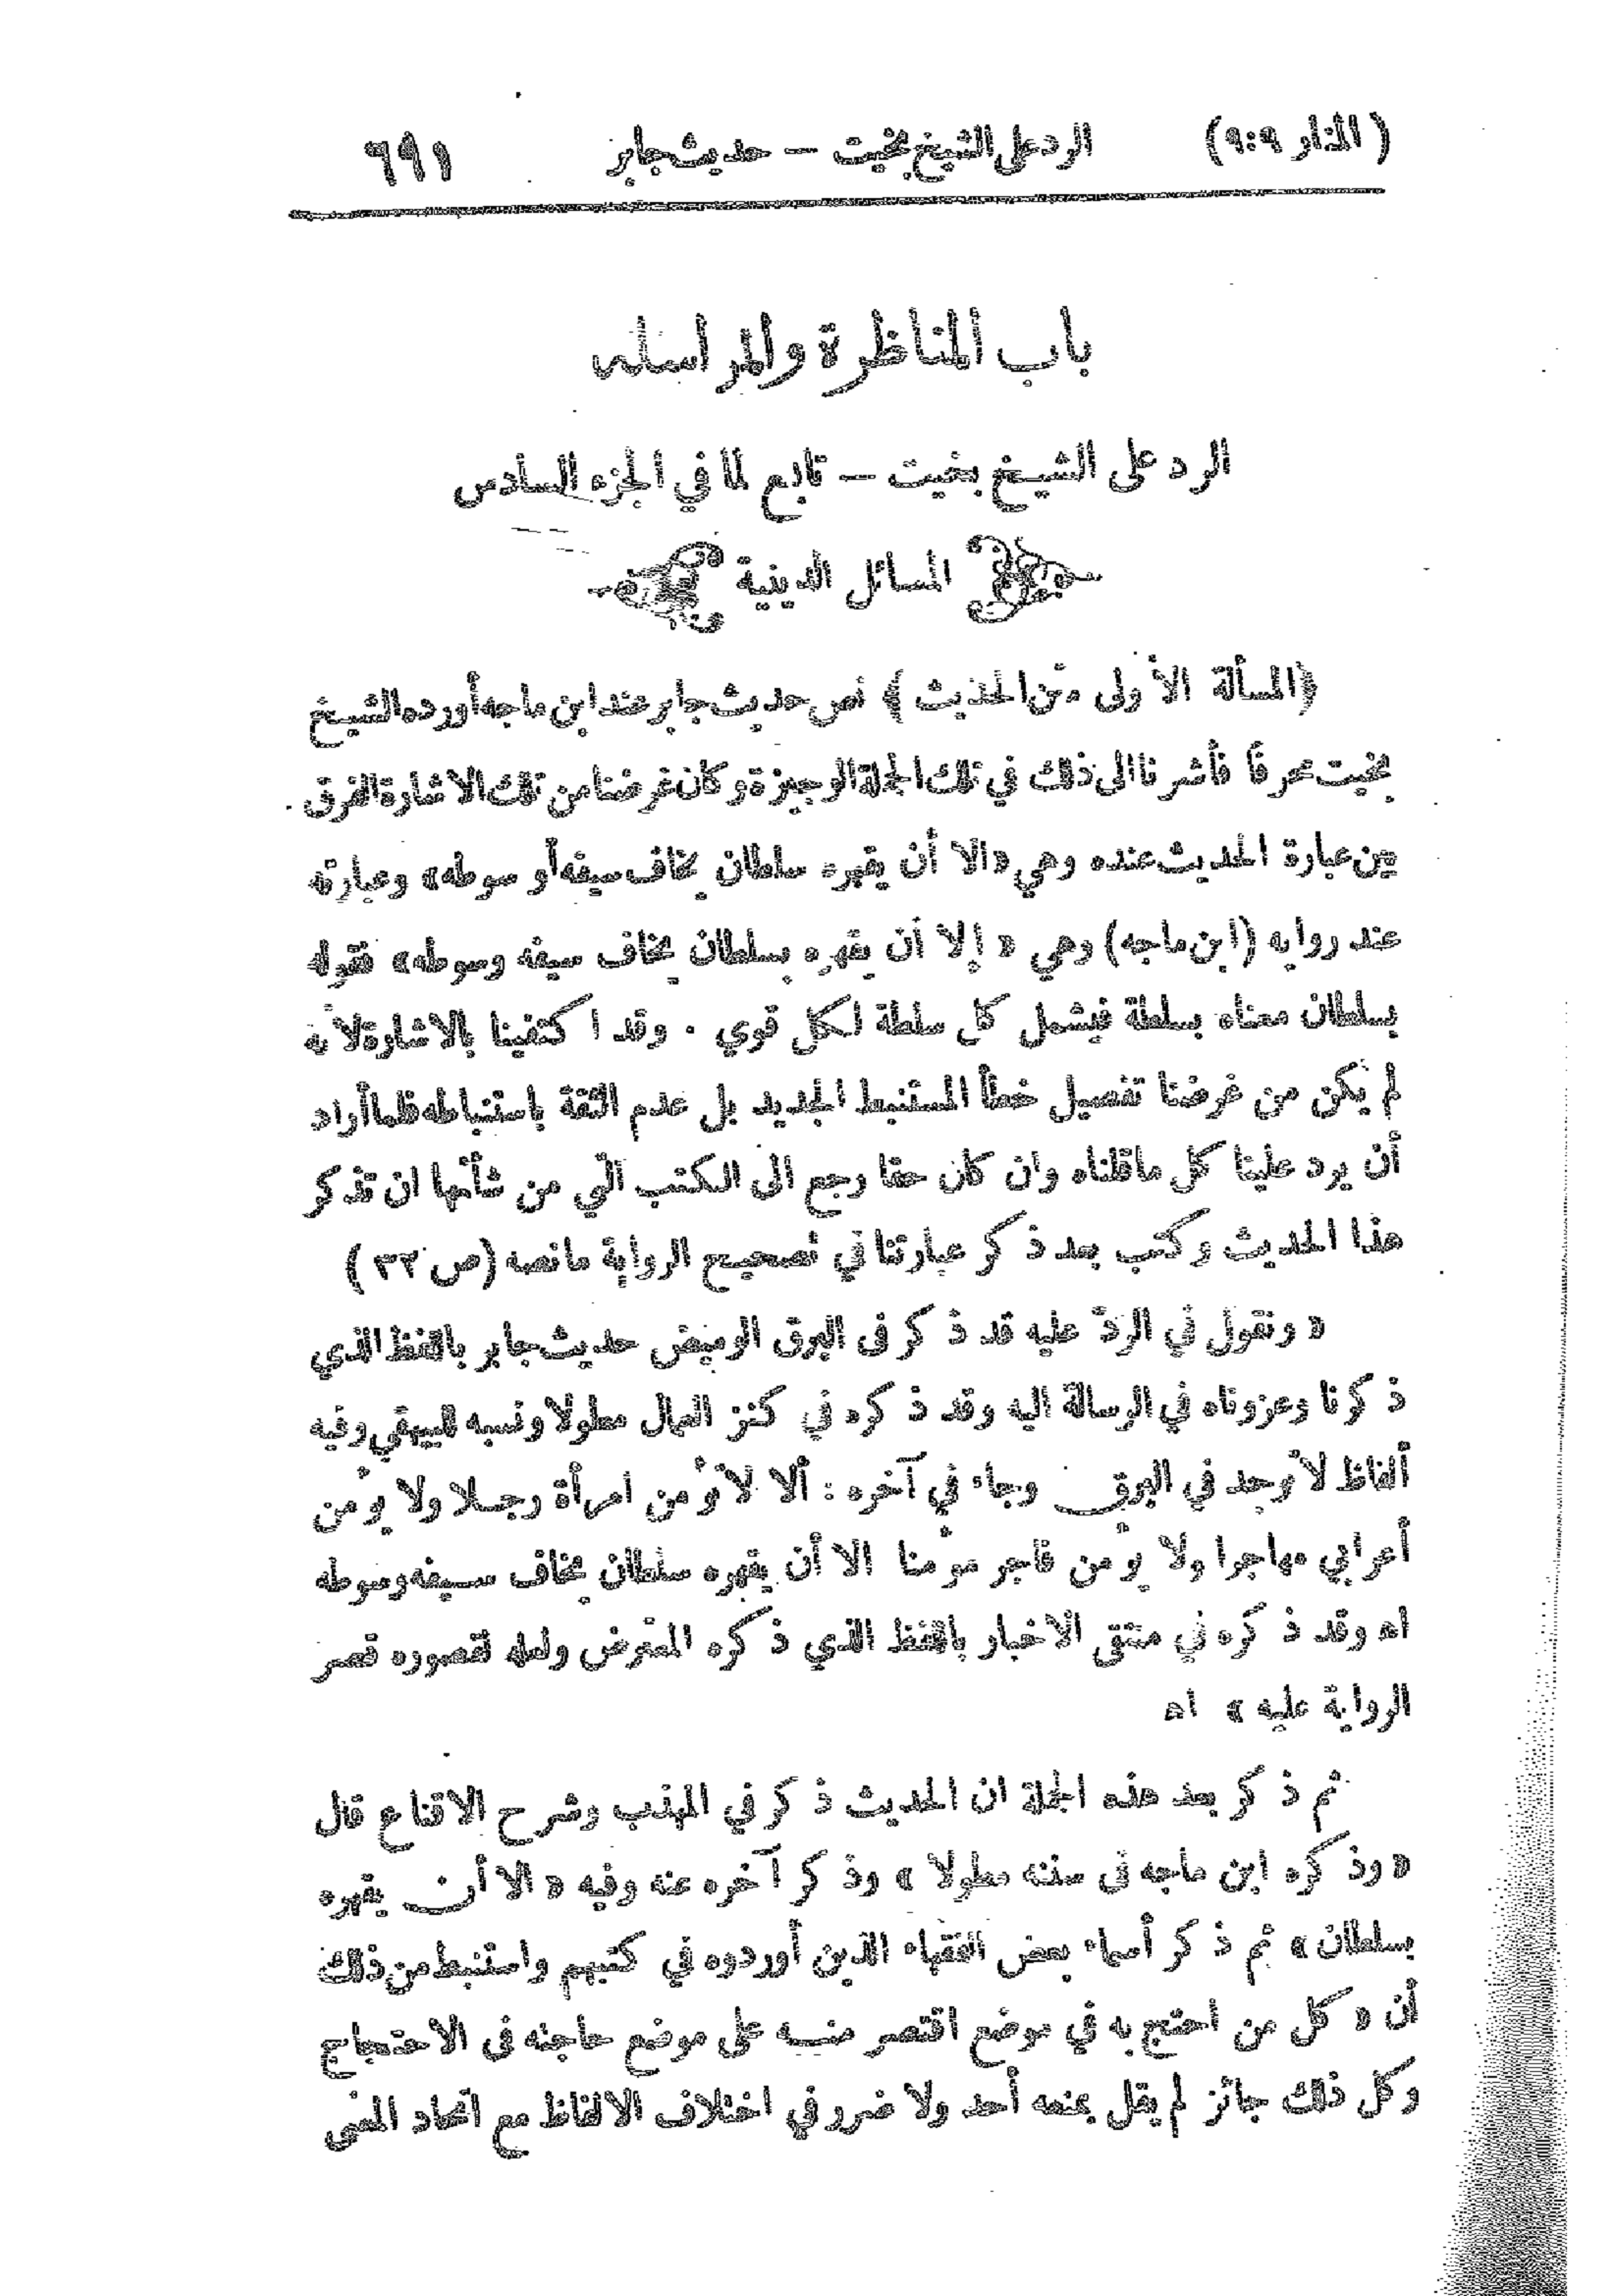 ( المنار ٩:٩) الرد على الشيخ بخيت — حديث جابر ٦٩١
باب المناظرة والمراسلة
الرد على الشيخ بخيت — تابع لما في الجزء السادس
المسائل الدينية
﴿المسألة الأولى متن الحديث﴾ نص حديث جابر عند ابن ماجه أورده الشيخ
بخيت محرفًا فأشرنا الى ذلك في تلك الجملة الوجيزة وكان غرضنا من تلك الاشارة الفرق
بين عبارة الحديث عنده وهي «الا أن يقهره سلطان يخاف سيفه أو سوطه» وعبارته
عند روايه (ابن ماجه) وهي « إلا أن يقهره بسلطان يخاف سيفه وسوطه» فقوله
بسلطان معناه بسلطة فيشمل كل سلطة لكل قوي . وقد اكتفينا بالاشارة لأنه
لم يكن من غرضنا تفصيل خطأ المستنبط الجديد بل عدم الثقة باستنباطه فلما أراد
أن يرد علينا كل ماقلناه وان كان حقا رجع الى الكتب التي من شأنها ان تذكر
هذا الحديث وكتب بعد ذكر عبارتنا في تصحيح الرواية مانصه (ص ٣٢)
« ونقول في الردّ عليه قد ذكر فى البرق الوميض حديث جابر باللفظ الذي
ذكرنا وعزوناه في الرسالة اليه وقد ذكره في كنز العمال مطولا ونسبه للبيهقي وفيه
ألفاظ لا توجد في البرق وجاء في آخره : ألا لا تؤمن امرأة رجلا ولا يؤمن
أعرابي مهاجرا ولا يؤمن فاجر مؤمنا الا أن يقهره سلطان يخاف سيفه وسوطه
اه وقد ذكره في منتقى الاخبار باللفظ الذي ذكره المعترض ولعله لقصوره قصر
الرواية عليه » اه
ثم ذكر بعد هذه الجملة ان الحديث ذكر في المهذب وشرح الاقناع قال
« وذكره ابن ماجه فى سننه مطولا » وذكر آخره عنه وفيه « الا أن يقهره
بسلطان» ثم ذكر أسماء بعض الفقهاء الذين أوردوه في كتبهم واستنبط من ذلك
أن « كل من احتج به في موضع اقتصر منه على موضع حاجته فى الاحتجاج
وكل ذلك جائز لم يقل بمنعه أحد ولا ضرر في اختلاف الالفاظ مع اتحاد المعنى